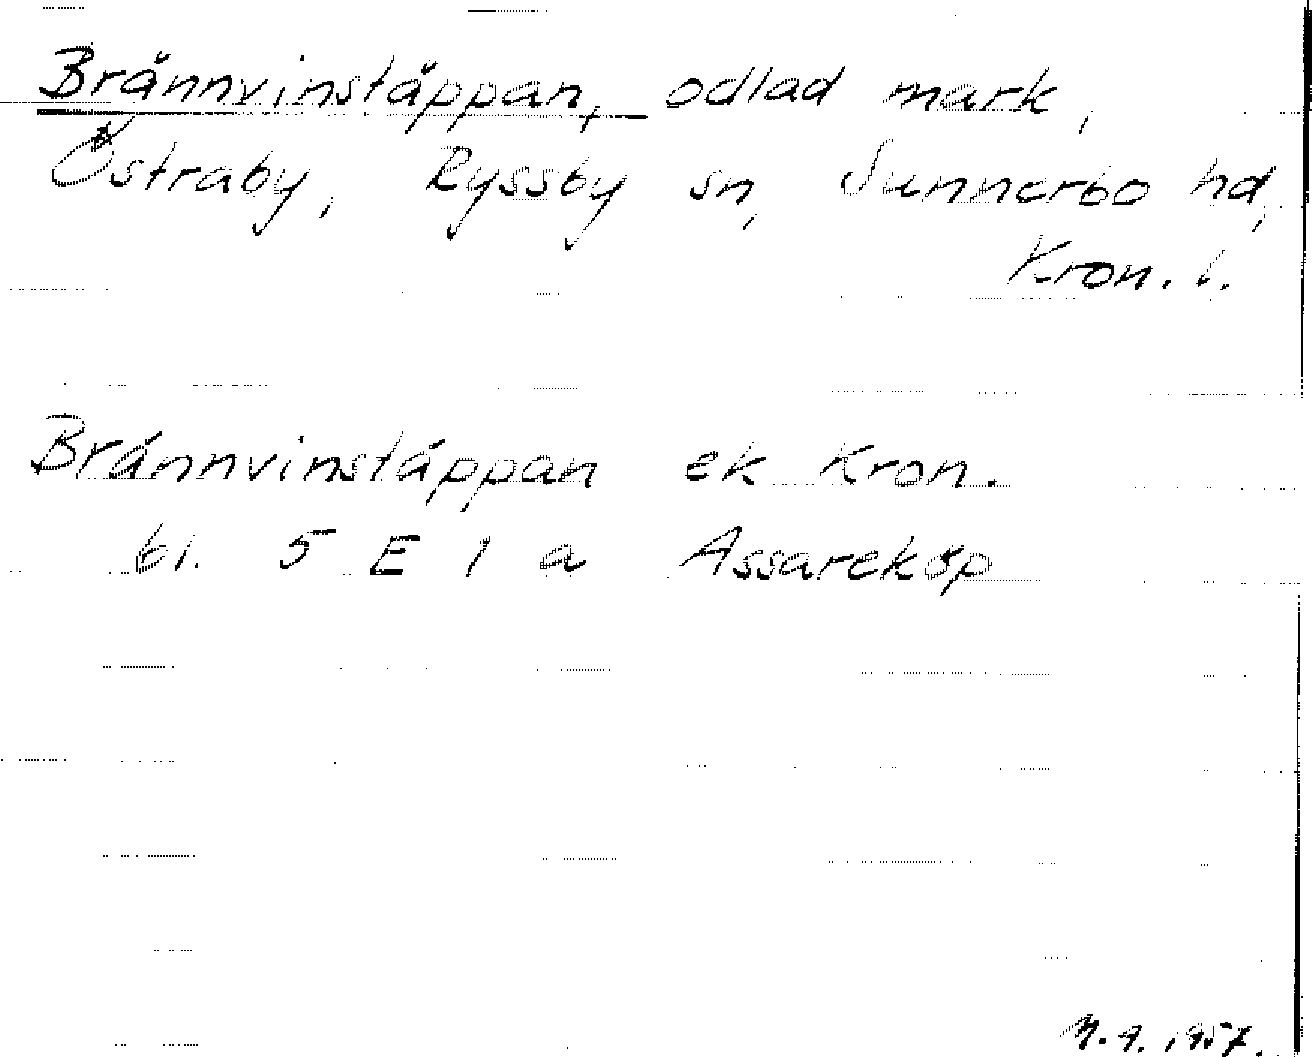 Brännvinstäppan, odlad mark,
Östraby, Ryssby sn, Sunnerbo hd,
Kron. l.
Brännvinstäppan ek Kron.
bl. 5 E 1 a Assareköp
1957.